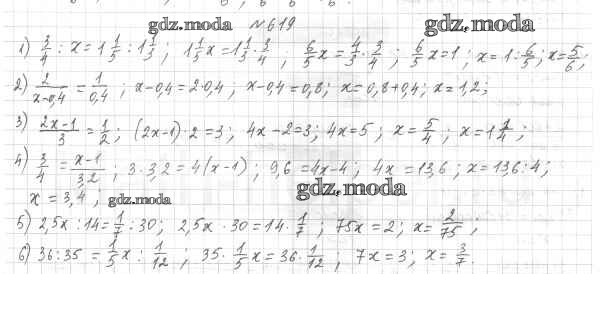 gdz.moda №619 gdz.moda
1) 3/4 : x = 1 1/5 : 1 1/3 ; 1 1/5 x = 1 1/3 · 3/4 ; 6/5 x = 4/3 · 3/4 ; 6/5 x = 1 ; x = 1 : 6/5 ; x = 5/6 ;
2) 2/(x-0,4) = 1/0,4 ; x-0,4 = 2·0,4 ; x-0,4 = 0,8 ; x = 0,8+0,4 ; x = 1,2 ;
3) (2x-1)/3 = 1/2 ; (2x-1)·2 = 3 ; 4x-2 = 3 ; 4x = 5 ; x = 5/4 ; x = 1 1/4 ;
4) 3/4 = (x-1)/3,2 ; 3·3,2 = 4(x-1) ; 9,6 = 4x-4 ; 4x = 13,6 ; x = 13,6 : 4 ;
x = 3,4 ; gdz.moda gdz.moda
5) 2,5x : 14 = 1/7 : 30 ; 2,5x · 30 = 14 · 1/7 ; 75x = 2 ; x = 2/75 ;
6) 36 : 35 = 1/5 x : 1/12 ; 35 · 1/5 x = 36 · 1/12 ; 7x = 3 ; x = 3/7 .